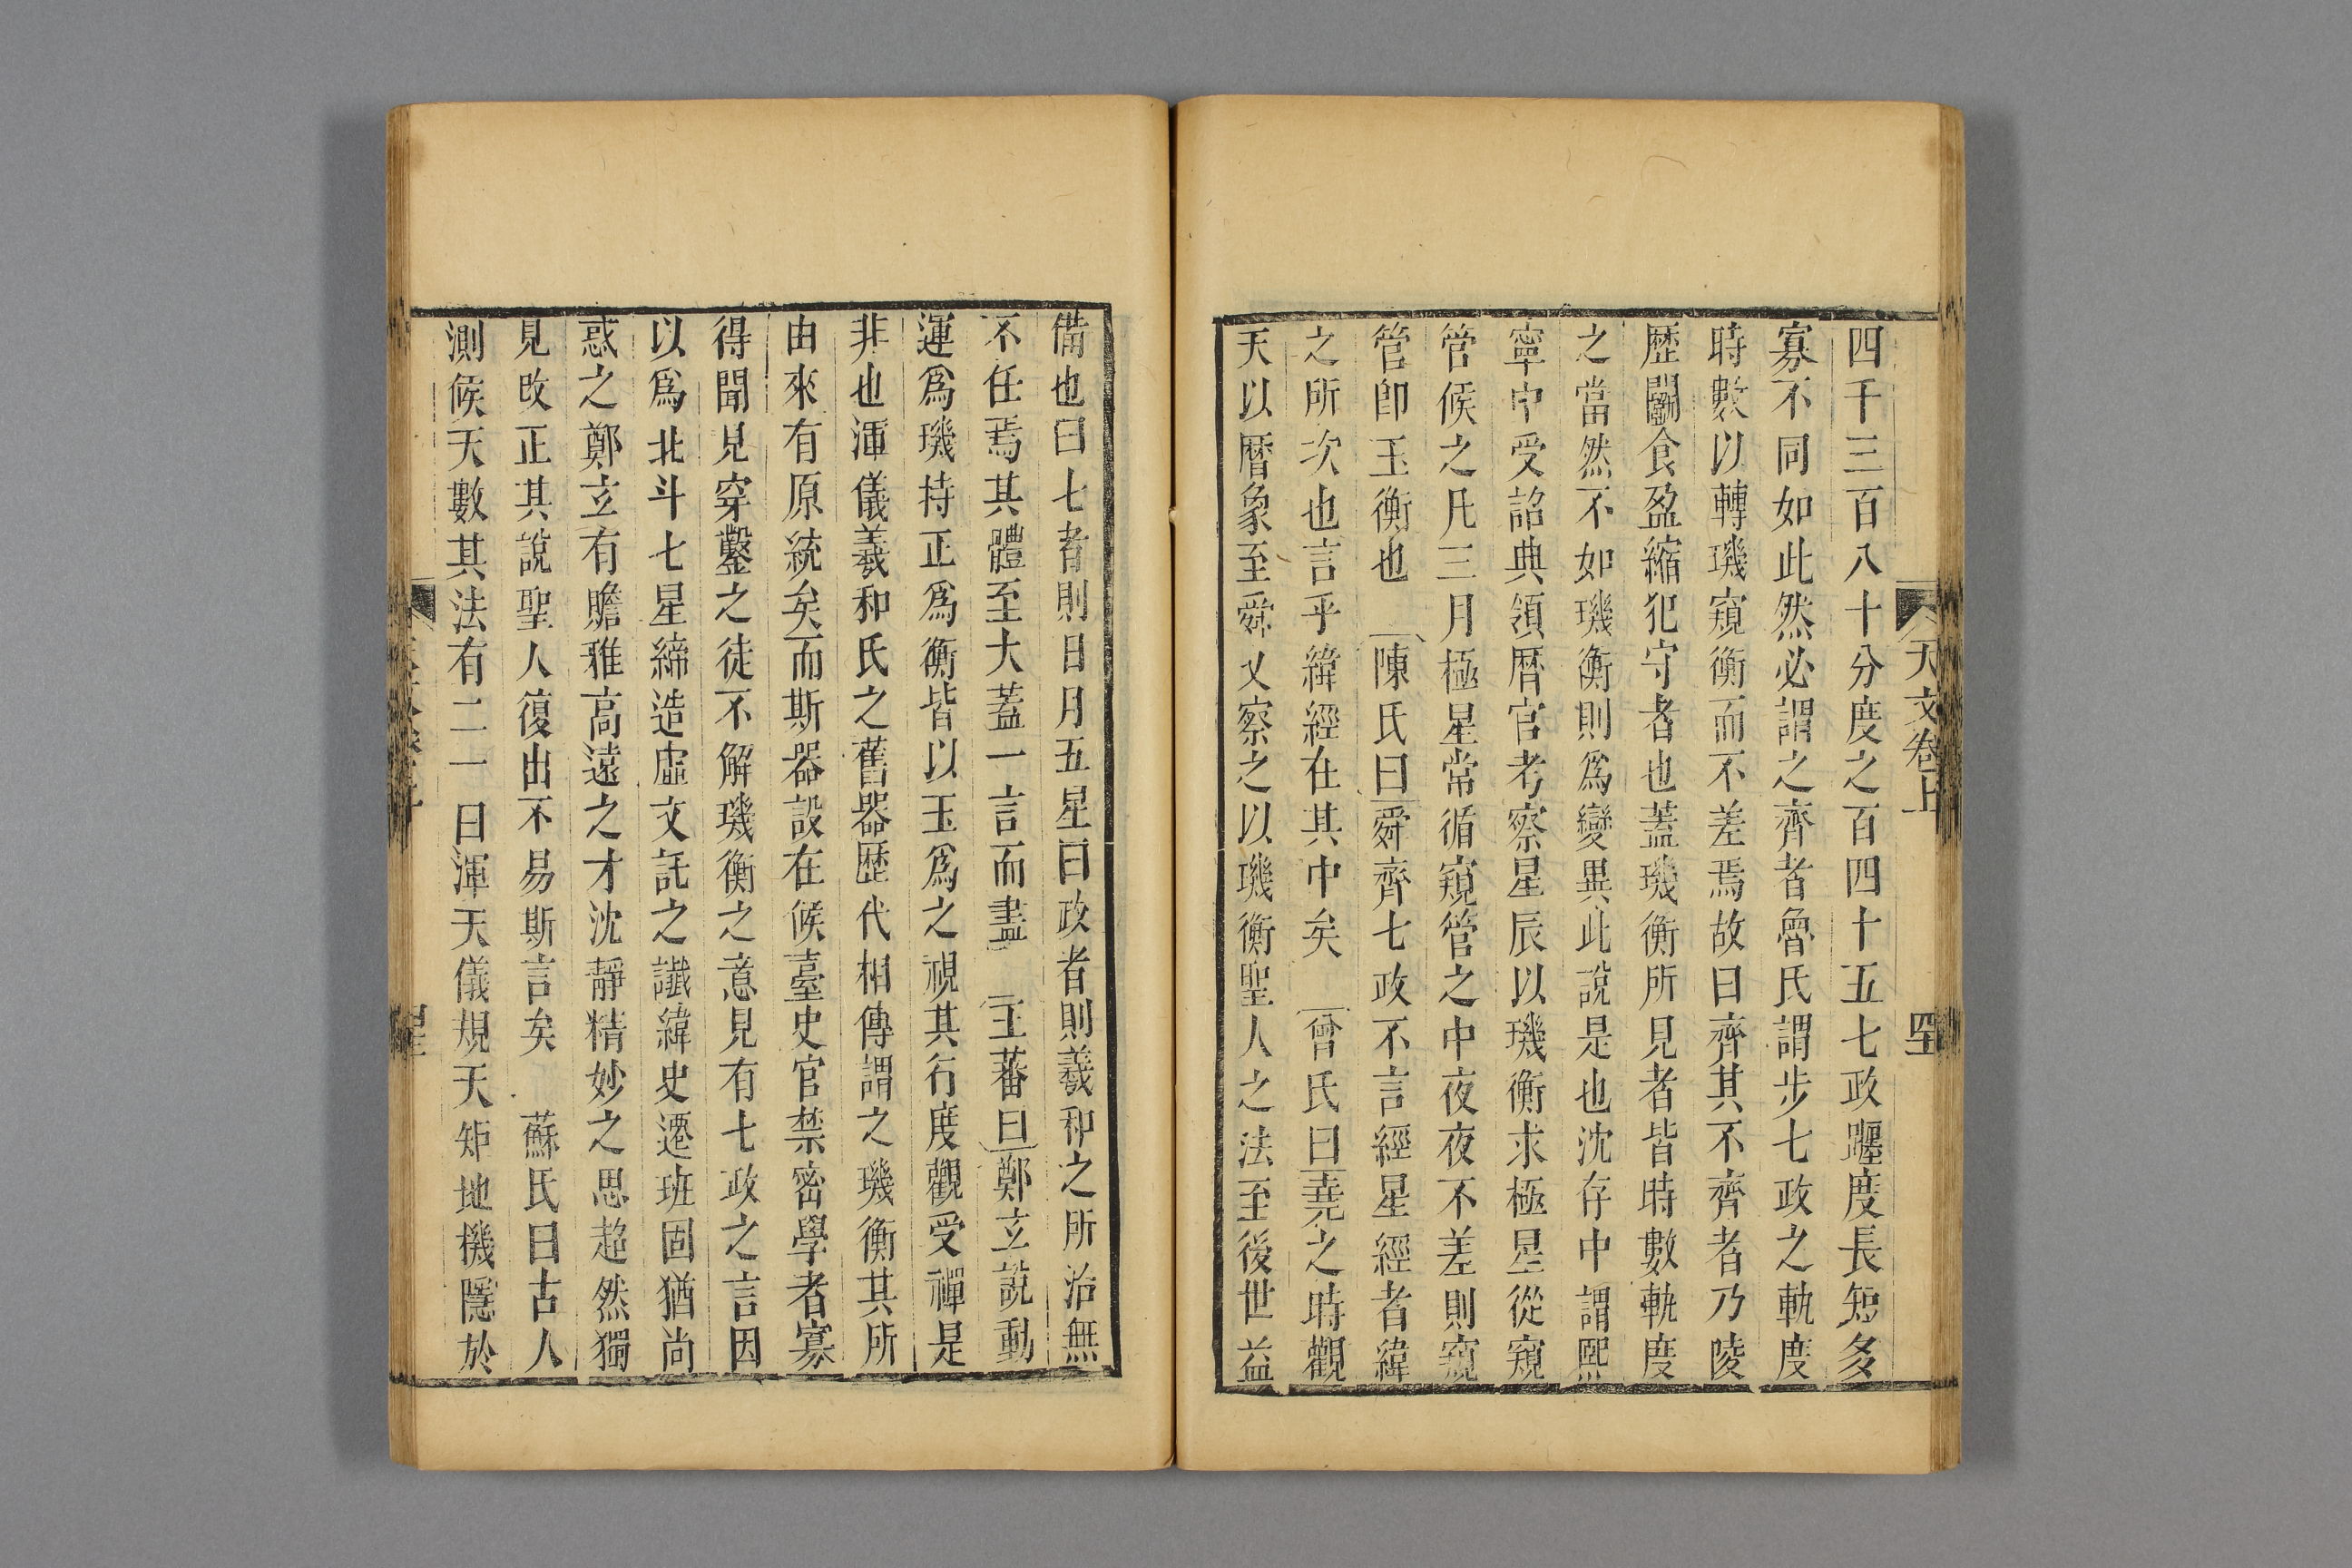 天文卷上
四千三百八十分度之百四十五七政躔度長短多
寡不同如此然必謂之齊者魯氏謂步七政之軌度
時數以轉璣窺衡而不差焉故曰齊其不齊者乃陵
歷鬭食盈縮犯守者也蓋璣衡所見者皆時數軌度
之當然不如璣衡則爲變異此說是也沈存中謂熙
寧中受詔典領曆官考察星辰以璣衡求極星從窺
管候之凡三月極星常循窺管之中夜夜不差則窺
管卽玉衡也 陳氏曰舜齊七政不言經星經者緯
之所次也言乎緯經在其中矣 曾氏曰堯之時觀
天以曆象至舜又察之以璣衡聖人之法至後世益
備也曰七者則日月五星曰政者則羲和之所治無
不任焉其體至大蓋一言而盡 王蕃曰鄭玄說動
運爲璣持正爲衡皆以玉爲之視其行度觀受禪是
非也渾儀羲和氏之舊器歷代相傳謂之璣衡其所
由來有原統矣而斯器設在候臺史官禁密學者寡
得聞見穿鑿之徒不解璣衡之意見有七政之言因
以爲北斗七星締造虛文託之讖緯史遷班固猶尚
惑之鄭玄有贍雅高遠之才沈靜精妙之思超然獨
見改正其說聖人復出不易斯言矣 蘇氏曰古人
測候天數其法有二一曰渾天儀規天矩地機隱於